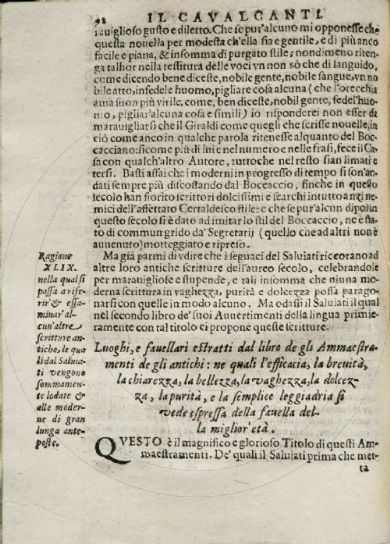 92 IL CAVALCANTE
rauiglioso gusto e diletto. Che se pur'alcuno mi opponesse che
questa nouella per modesta ch'ella sia e gentile, e di più anco
facile e piana, & insomma di purgato stile; nondimeno riten-
ga talhor nella tessitura delle voci vn non sò che di languido,
come dicendo bene diceste, nobile gente, nobile sangue, vn no
bile atto, infedele huomo, pigliare cosa alcuna ( che l'orecchia
ama suon più virile, come, ben diceste, nobil gente, fedel huo-
mo, pigliar'alcuna cosa e simili ) io risponderei non esser da
marauigliarsi che il Giraldi come quegli che scrisse nouelle, in
ciò come anco in qualche parola ritenesse alquanto del Boc-
cacciano: sicome più di lui e nel numero e nelle frasi, fece il Ca
sa con qualch'altro Autore, tuttoche nel resto sian limati e
tersi. Basti assai che i moderni in progresso di tempo si son'an-
dati sempre più discostando dal Boccaccio, finche in questo
secolo han fiorito scrittori dolcissimi e scarchi in tutto anzi ne-
mici dell'affettato Certaldese stile: e che se pur alcun dipoi in
questo secolo si è dato ad imitar lo stil del Boccaccio, ne è sta-
to di commun grido da' Segretarij ( quello che ad altri non è
auuenuto) motteggiato e ripreso.
Ma già parmi di vdire che i seguaci del Saluiati ricorano ad
altre loro antiche scritture dell'aureo secolo, celebrandole
per marauigliose e stupende, e tali insomma che niuna mo-
derna scrittura in vaghezza, purità e dolcezza possa parago-
narsi con quelle in modo alcuno. Ma odasi il Saluiati il qual
nel secondo libro de' suoi Auuertimenti della lingua prime-
ramente con tal titolo ci propone queste scritture.
Ragione
XLIX.
nella qual si
passa a rife-
rir' & essa-
minar' al-
cun'altre
scritture an-
tiche, le qua
li dal Saluia-
ti vengono
sommamen-
te lodate &
alle moder-
ne di gran
lunga ante-
poste.
Luoghi, e fauellari estratti dal libro de gli Ammaestra-
menti de gli antichi: ne quali l'efficacia, la breuità,
la chiarezza, la bellezza, la vaghezza, la dolcez-
za, la purità, e la semplice leggiadria si
vede espressa della fauella del-
la miglior'età.
QVESTO è il magnifico e glorioso Titolo di questi Am-
maestramenti. De' quali il Saluiati prima che met-
ta